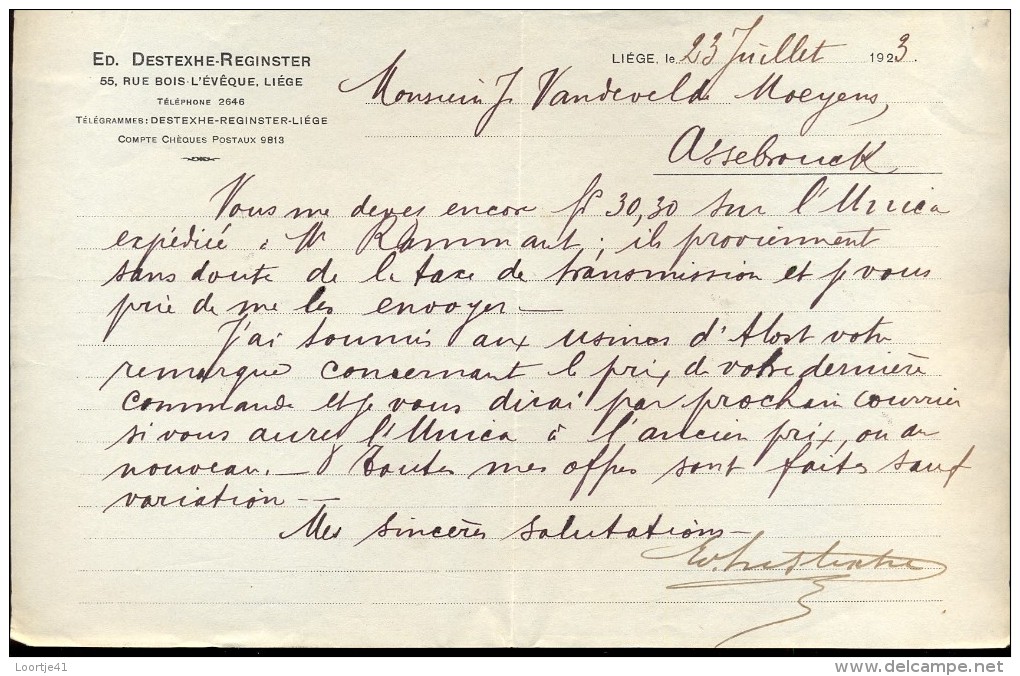 ED. DESTEXHE-REGINSTER
55, RUE BOIS-L'ÉVÊQUE, LIÉGE
TÉLÉPHONE 2646
TÉLÉGRAMMES: DESTEXHE-REGINSTER-LIÉGE
COMPTE CHÈQUES POSTAUX 9813
LIÉGE, le 23 Juillet 1923.
Monsieur J. Vandevelde Moeyens,
Assebrouck
Vous me devez encore fr 30,30 sur l'Unica
expédiée à Mr Rammant; ils proviennent
sans doute de la taxe de transmission et je vous
prie de me les envoyer. —
J'ai soumis aux usines d'Alost votre
remarque concernant le prix de votre dernière
commande et je vous dirai par prochain courrier
si vous aurez l'Unica à l'ancien prix, ou au
nouveau. — Toutes mes offres sont faites sauf
variation. —
Mes sincères salutations —
Ed. Destexhe
Loortje41
www.delcampe.net